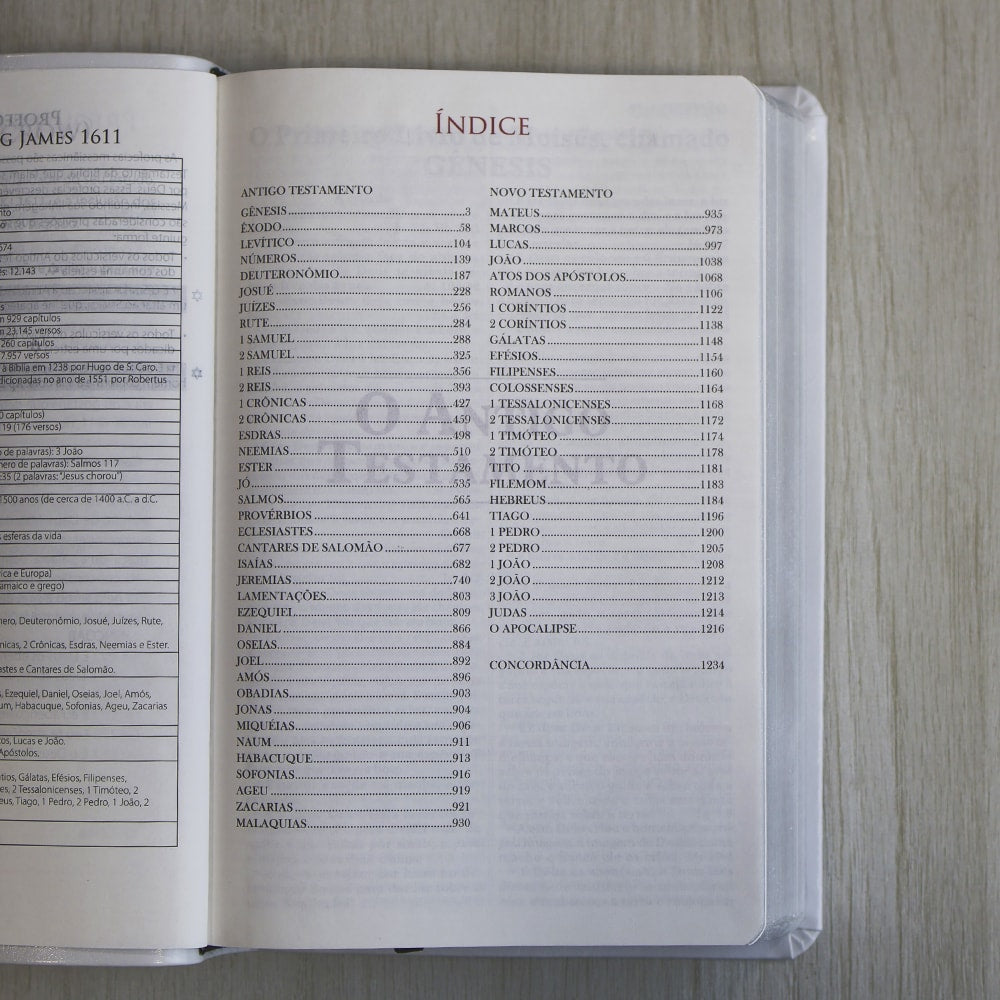 G JAMES 1611
574
s: 12.143
m 929 capítulos
m 23.145 versos
260 capítulos
7.957 versos
a Bíblia em 1238 por Hugo de S. Caro.
dicionadas no ano de 1551 por Robertus
0 capítulos)
19 (176 versos)
o de palavras): 3 João
ero de palavras): Salmos 117
:35 (2 palavras: "Jesus chorou")
1500 anos (de cerca de 1400 a.C. a d.C.
s esferas da vida
ica e Europa)
amaico e grego)
mero, Deuteronômio, Josué, Juízes, Rute,
nicas, 2 Crônicas, Esdras, Neemias e Ester.
astes e Cantares de Salomão.
s, Ezequiel, Daniel, Oseias, Joel, Amós,
um, Habacuque, Sofonias, Ageu, Zacarias
os, Lucas e João.
Apóstolos.
tios, Gálatas, Efésios, Filipenses,
es, 2 Tessalonicenses, 1 Timóteo,
eus, Tiago, 1 Pedro, 2 Pedro, 1 João, 2
ÍNDICE
ANTIGO TESTAMENTO
GÊNESIS 3
ÊXODO 58
LEVÍTICO 104
NÚMEROS 139
DEUTERONÔMIO 187
JOSUÉ 228
JUÍZES 256
RUTE 284
1 SAMUEL 288
2 SAMUEL 325
1 REIS 356
2 REIS 393
1 CRÔNICAS 427
2 CRÔNICAS 459
ESDRAS 498
NEEMIAS 510
ESTER 526
JÓ 535
SALMOS 565
PROVÉRBIOS 641
ECLESIASTES 668
CANTARES DE SALOMÃO 677
ISAÍAS 682
JEREMIAS 740
LAMENTAÇÕES 803
EZEQUIEL 809
DANIEL 866
OSEIAS 884
JOEL 892
AMÓS 896
OBADIAS 903
JONAS 904
MIQUÉIAS 906
NAUM 911
HABACUQUE 913
SOFONIAS 916
AGEU 919
ZACARIAS 921
MALAQUIAS 930
NOVO TESTAMENTO
MATEUS 935
MARCOS 973
LUCAS 997
JOÃO 1038
ATOS DOS APÓSTOLOS 1068
ROMANOS 1106
1 CORÍNTIOS 1122
2 CORÍNTIOS 1138
GÁLATAS 1148
EFÉSIOS 1154
FILIPENSES 1160
COLOSSENSES 1164
1 TESSALONICENSES 1168
2 TESSALONICENSES 1172
1 TIMÓTEO 1174
2 TIMÓTEO 1178
TITO 1181
FILEMOM 1183
HEBREUS 1184
TIAGO 1196
1 PEDRO 1200
2 PEDRO 1205
1 JOÃO 1208
2 JOÃO 1212
3 JOÃO 1213
JUDAS 1214
O APOCALIPSE 1216
CONCORDÂNCIA 1234
O ANTIGO
TESTAMENTO